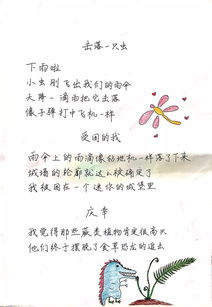 击落一只虫
下雨啦
小虫刚飞出我们的雨伞
天降一滴雨把它击落
像子弹打中飞机一样
受困的我
雨伞上的雨滴像钻地机一样落了下来
城墙的轮廓就这么被确定了
我被困在一个迷你的城堡里
庆幸
我觉得那些蕨类植物肯定很高兴
他们终于摆脱了食草恐龙的追去